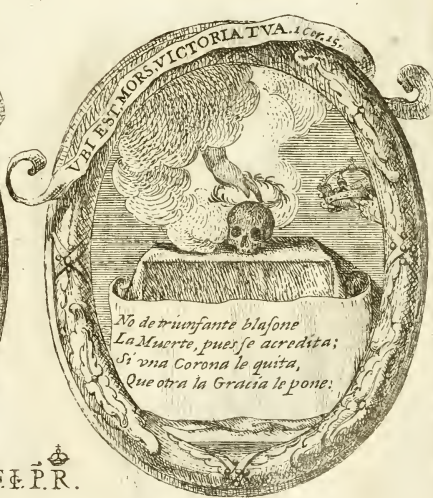 VBI EST MORS VICTORIA TVA. 1 Cor. 15.
No de triunfante blasone
La Muerte, pues se acredita;
Si vna Corona le quita,
Que otra la Gracia le pone:
P. R.